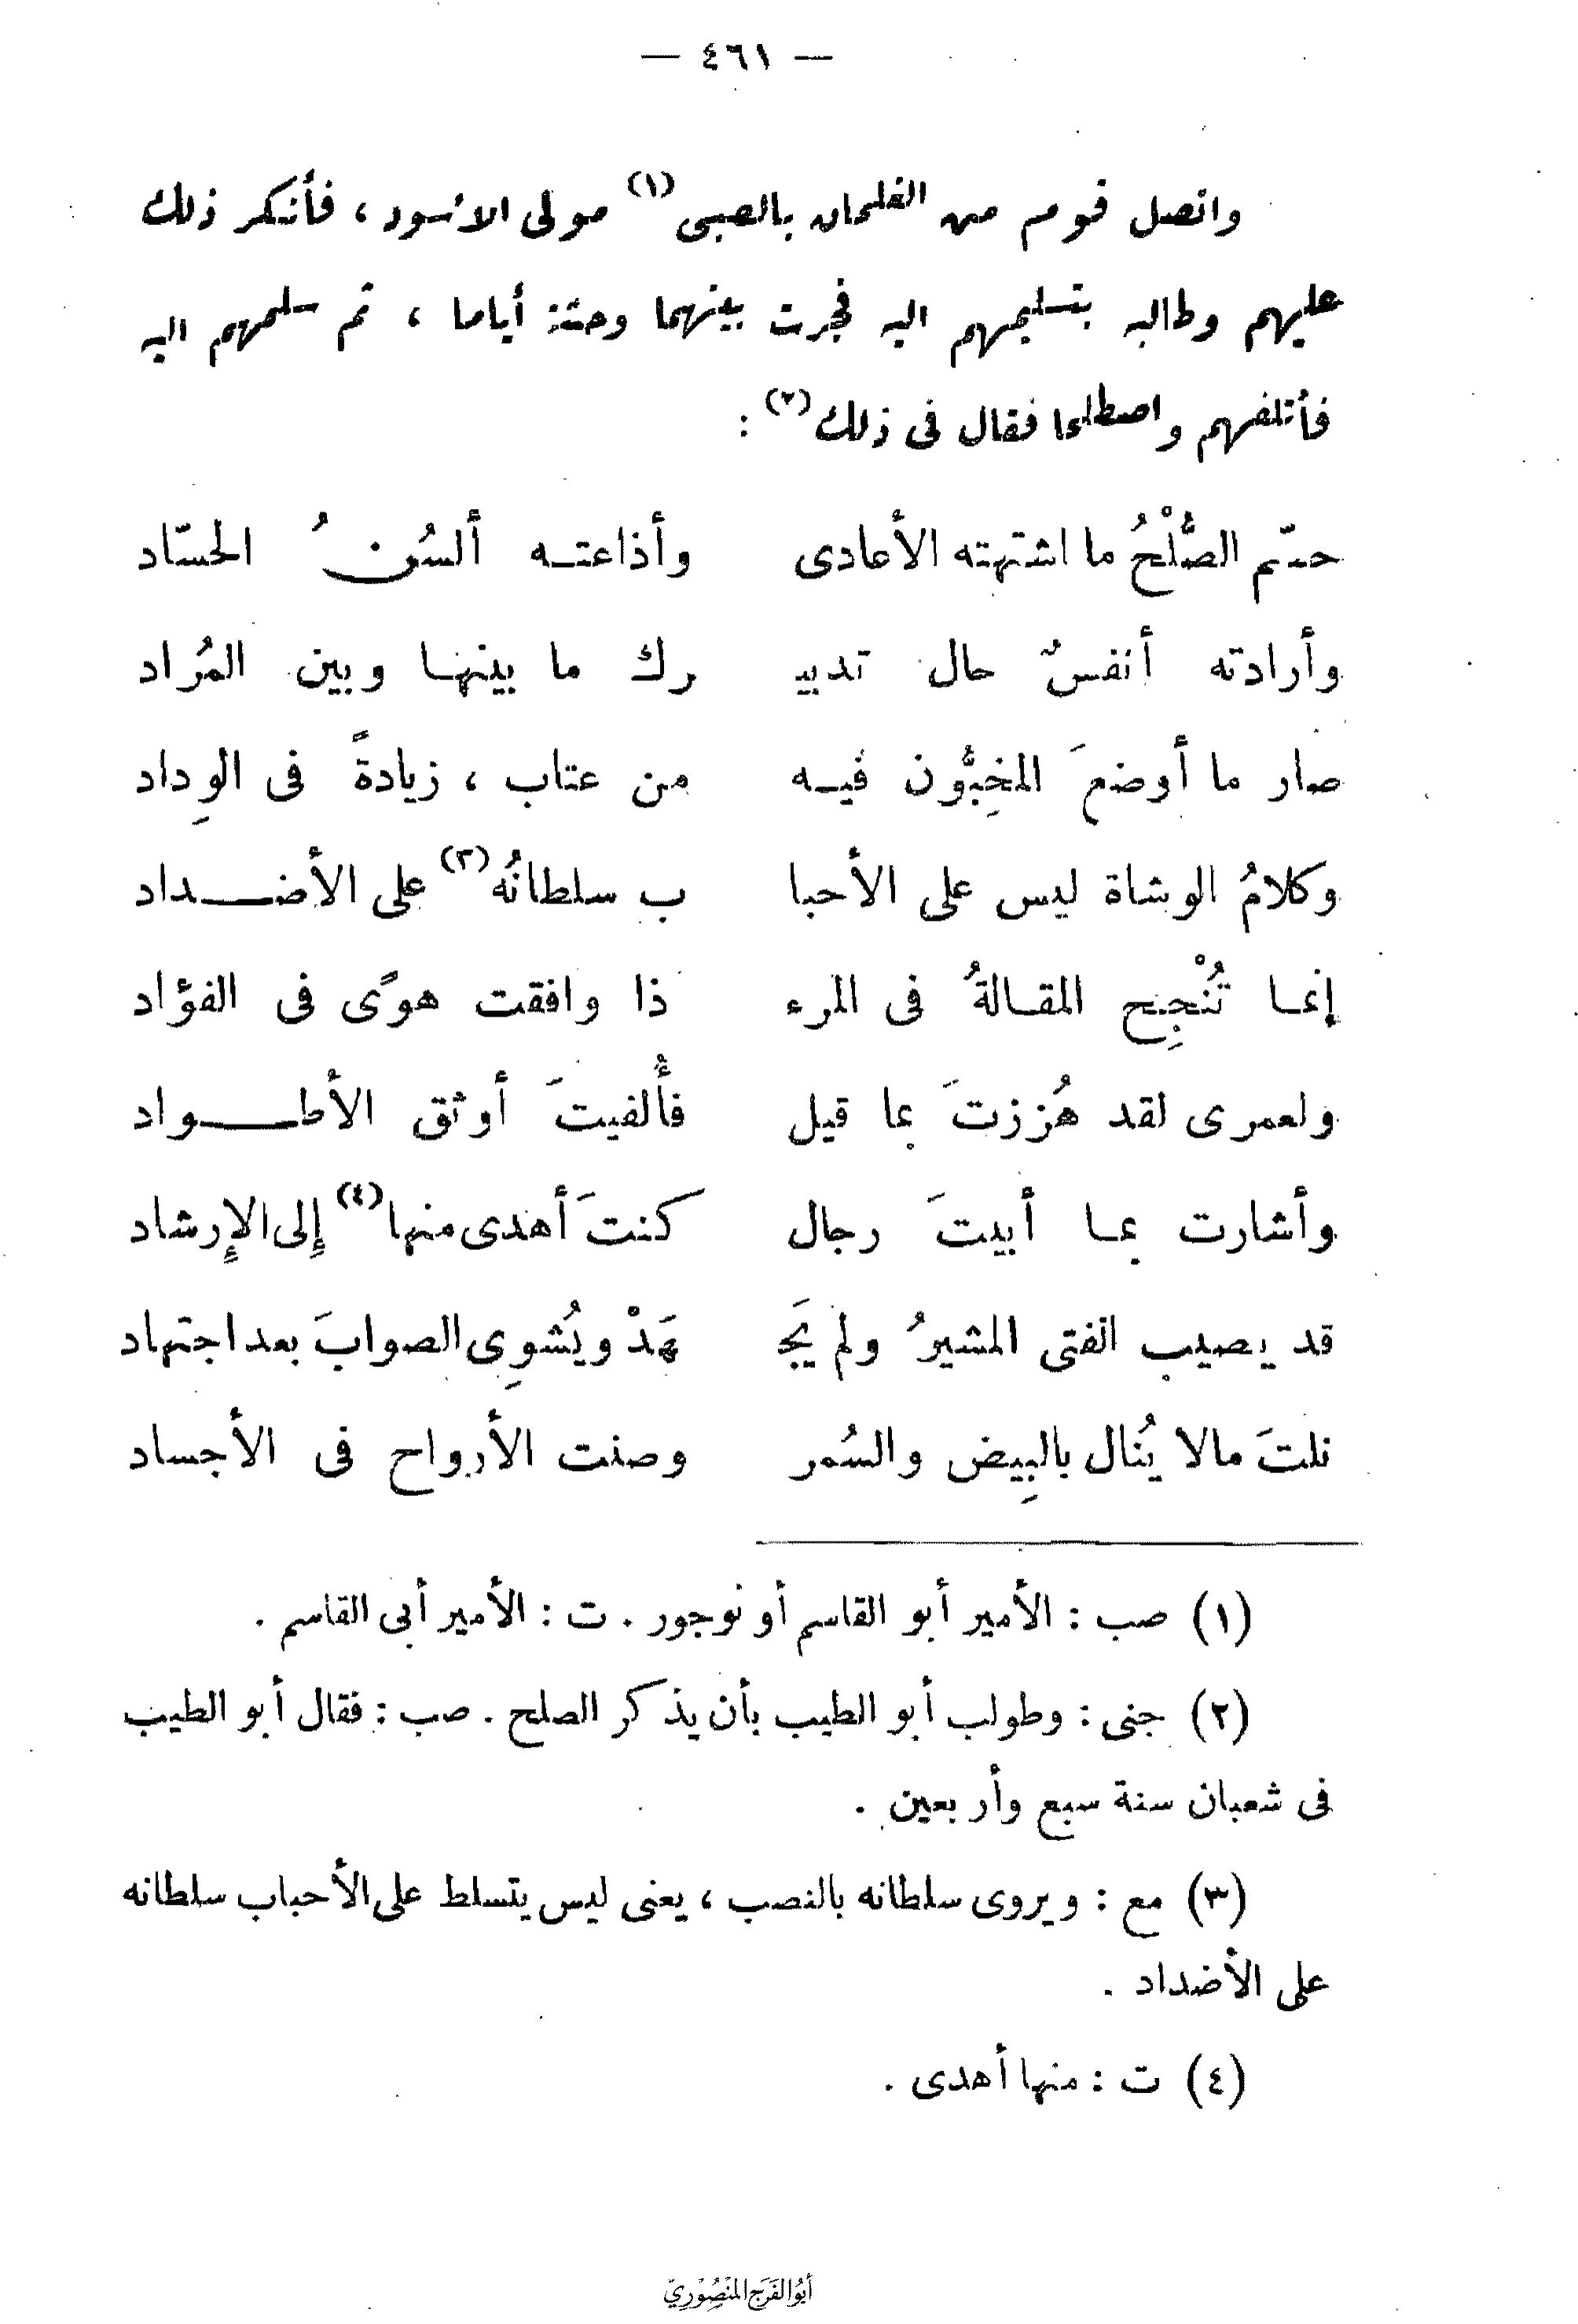 — ٤٦١ —
واتصل قوم من الغلمان بالصبى (١) مولى الأسود ، فأنكر ذلك
عليهم وطالبه بتسليمهم اليه فجرت بينهما وحشة أياما ، ثم سلمهم اليه
فأتلفهم واصطلحا فقال فى ذلك (٢) :
حسّم الصُّلْحُ ما اشتهته الأعادى وأذاعتــه ألسُن ُ الحسّاد
وأرادته أنفسٌ حال تدبيـ ـرك ما بينهـا وبين المُراد
صار ما أوضعَ المخِبُّون فيــه من عتاب ، زيادةً فى الوِداد
وكلامُ الوشاة ليس على الأحبا ب سلطانُه (٣) على الأضــداد
إنمـا تُنْجِح المقـالةُ فى المرء ذا وافقت هوًى فى الفؤاد
ولعمرى لقد هُززتَ بما قيل فأُلفيتَ أوثق الأطــواد
وأشارت بمـا أبيتَ رجال كنتَ أهدى منها (٤) إلى الإرشاد
قد يصيب الفتى المشيرُ ولم يَجـ ـهَدْ ويُشوِى الصوابَ بعد اجتهاد
نلتَ مالا يُنال بالبِيض والسُمر وصنت الأرواح فى الأجساد
(١) صب : الأمير أبو القاسم أو نوجور . ت : الأمير أبى القاسم .
(٢) جنى : وطولب أبو الطيب بأن يذكر الصلح . صب : فقال أبو الطيب
فى شعبان سنة سبع وأربعين .
(٣) مع : ويروى سلطانه بالنصب ، يعنى ليس يتسلط على الأحباب سلطانه
على الأضداد .
(٤) ت : منها أهدى .
أبُو الفَرَج المَنْصُوْرِيّ